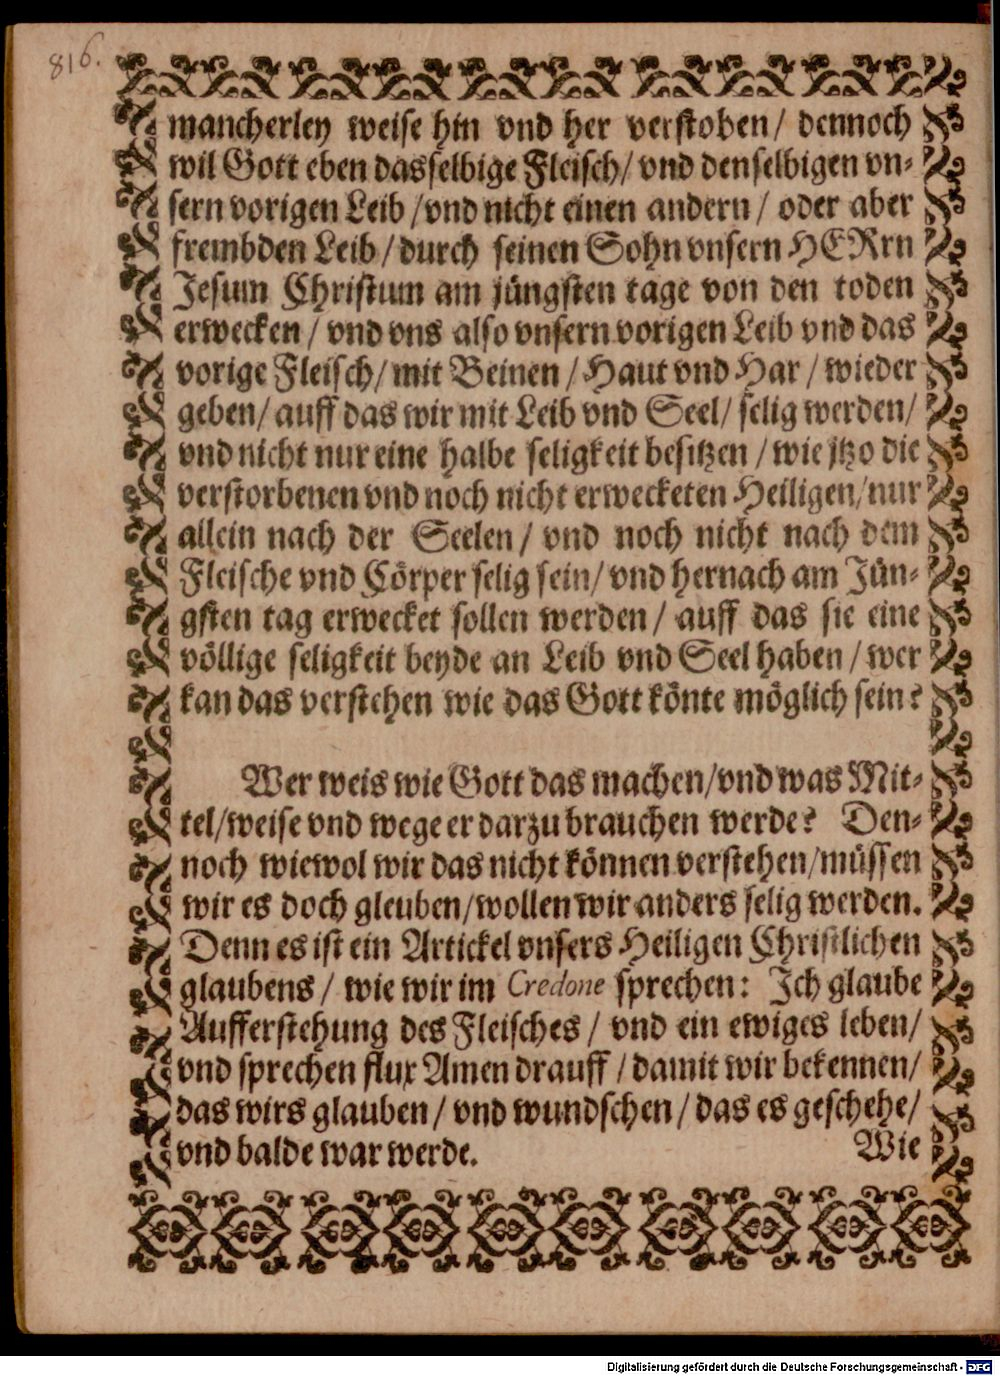 816.
mancherley weise hin vnd her verstoben / dennoch
wil Gott eben dasselbige Fleisch / vnd denselbigen vn-
sern vorigen Leib / vnd nicht einen andern / oder aber
frembden Leib / durch seinen Sohn vnsern HERrn
Jesum Christum am jüngsten tage von den toden
erwecken / vnd vns also vnsern vorigen Leib vnd das
vorige Fleisch / mit Beinen / Haut vnd Har / wieder
geben / auff das wir mit Leib vnd Seel / selig werden /
vnd nicht nur eine halbe seligkeit besitzen / wie jtzo die
verstorbenen vnd noch nicht erwecketen Heiligen / nur
allein nach der Seelen / vnd noch nicht nach dem
Fleische vnd Cörper selig sein / vnd hernach am Jün-
gsten tag erwecket sollen werden / auff das sie eine
völlige seligkeit beyde an Leib vnd Seel haben / wer
kan das verstehen wie das Gott könte möglich sein?
Wer weis wie Gott das machen / vnd was Mit-
tel / weise vnd wege er darzu brauchen werde? Den-
noch wiewol wir das nicht können verstehen / müssen
wir es doch gleuben / wollen wir anders selig werden.
Denn es ist ein Artickel vnsers Heiligen Christlichen
glaubens / wie wir im Credone sprechen: Ich glaube
Aufferstehung des Fleisches / vnd ein ewiges leben /
vnd sprechen flux Amen drauff / damit wir bekennen /
das wirs glauben / vnd wundschen / das es geschehe /
vnd balde war werde.
Wie
Digitalisierung gefördert durch die Deutsche Forschungsgemeinschaft - DFG